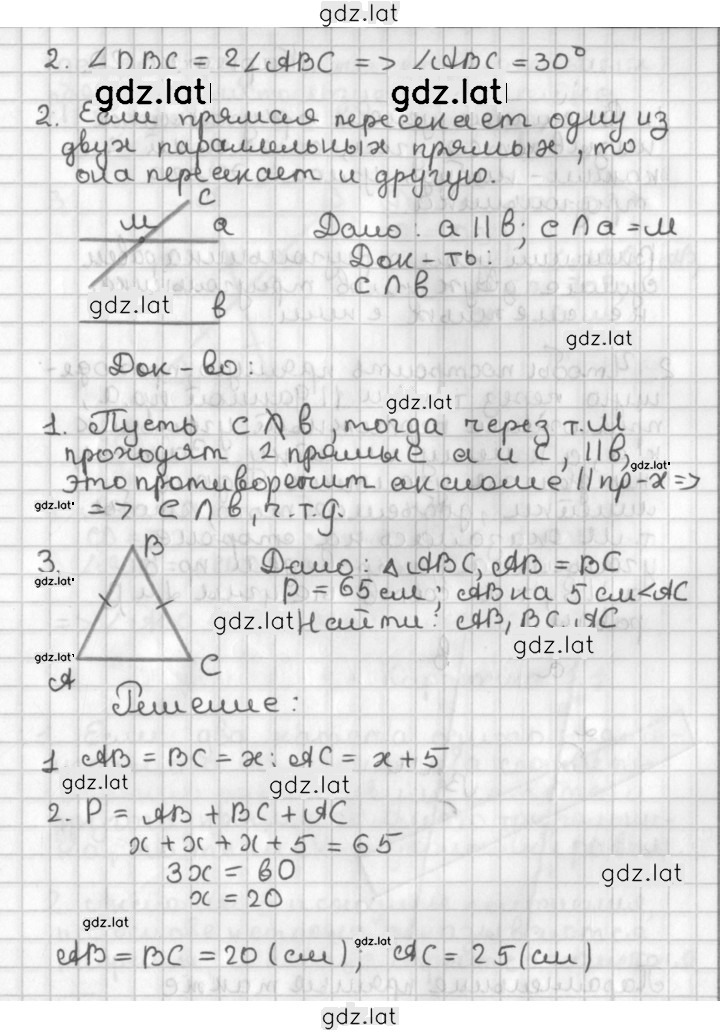 gdz.lat
2. ∠DBC = 2∠ABC => ∠ABC = 30°
gdz.lat gdz.lat
2. Если прямая пересекает одну из
двух параллельных прямых, то
она пересекает и другую.
C
M a
Дано: a || b; c ∩ a = M
Док-ть:
c ∩ b
gdz.lat
b
gdz.lat
Док-во:
gdz.lat
1. Пусть c ∩̸ b, тогда через т. M
проходят 2 прямые a и c, || b,
gdz.lat
это противоречит аксиоме || пр-х =>
gdz.lat
=> c ∩ b, ч.т.д.
3.
B
Дано: △ABC, AB = BC
gdz.lat
P = 65 см, AB на 5 см < AC
gdz.lat
Найти: AB, BC, AC
gdz.lat
gdz.lat
A C
Решение:
1 AB = BC = x: AC = x + 5
gdz.lat gdz.lat
2. P = AB + BC + AC
x + x + x + 5 = 65
3x = 60
gdz.lat
x = 20
gdz.lat
gdz.lat
AB = BC = 20 (см); AC = 25 (см)
gdz.lat